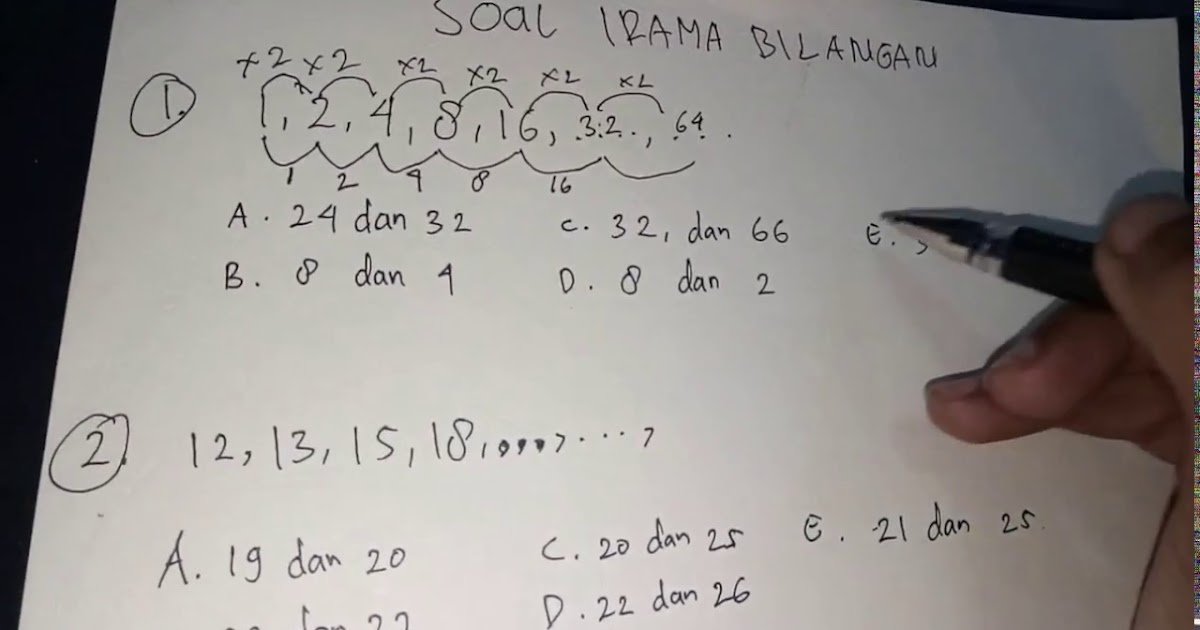 SOAL IRAMA BILANGAN
×2 ×2 ×2 ×2 ×2 ×2
1. 1, 2, 4, 8, 16, 32, 64.
1 2 4 8 16
A. 24 dan 32 C. 32, dan 66 E.
B. 8 dan 4 D. 8 dan 2
2. 12, 13, 15, 18, ..., ...,
A. 19 dan 20 C. 20 dan 25 E. 21 dan 25.
D. 22 dan 26